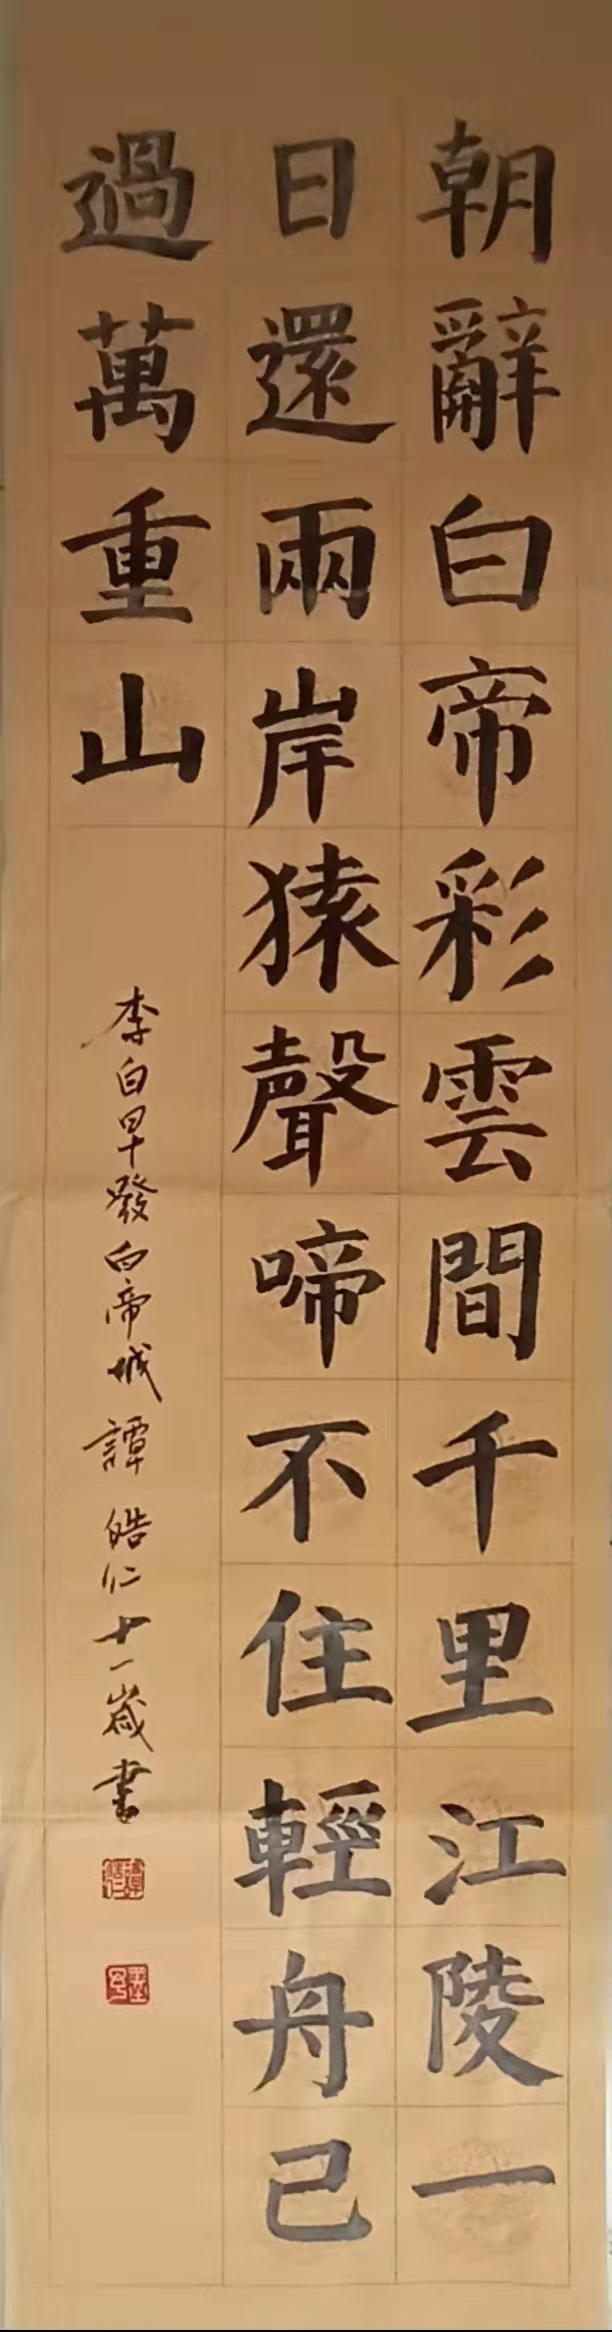 朝辭白帝彩雲間千里江陵一
日還兩岸猿聲啼不住輕舟己
過萬重山
李白早發白帝城 譚皓仁十一歲書